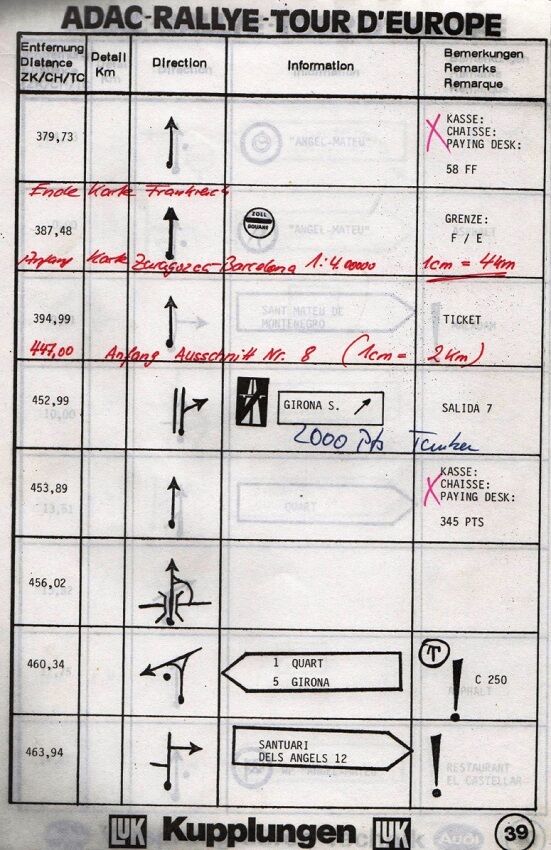 ADAC-RALLYE-TOUR D'EUROPE
Entfernung
Distance
ZK/CH/TC
Detail
Km
Direction
Information
Bemerkungen
Remarks
Remarque
379,73
KASSE:
CHAISSE:
PAYING DESK:
58 FF
"ANGEL-MATEU"
Ende Karte Frankreich
387,48
ZOLL
DOUANE
"ANGEL-MATEU"
GRENZE:
F / E
Anfang Karte Zaragoza-Barcelona 1:4.00000 1cm = 4km
394,99
SANT MATEU DE
MONTENEGRO
TICKET
447,00 Anfang Ausschnitt Nr. 8 (1cm = 2km)
452,99
GIRONA S.
SALIDA 7
2000 Pts Tanken
453,89
KASSE:
CHAISSE:
PAYING DESK:
345 PTS
QUART
456,02
460,34
1 QUART
5 GIRONA
T
C 250
ASPHALT
463,94
SANTUARI
DELS ANGELS 12
RESTAURANT
EL CASTELLAR
LUK Kupplungen LUK
Audi
39